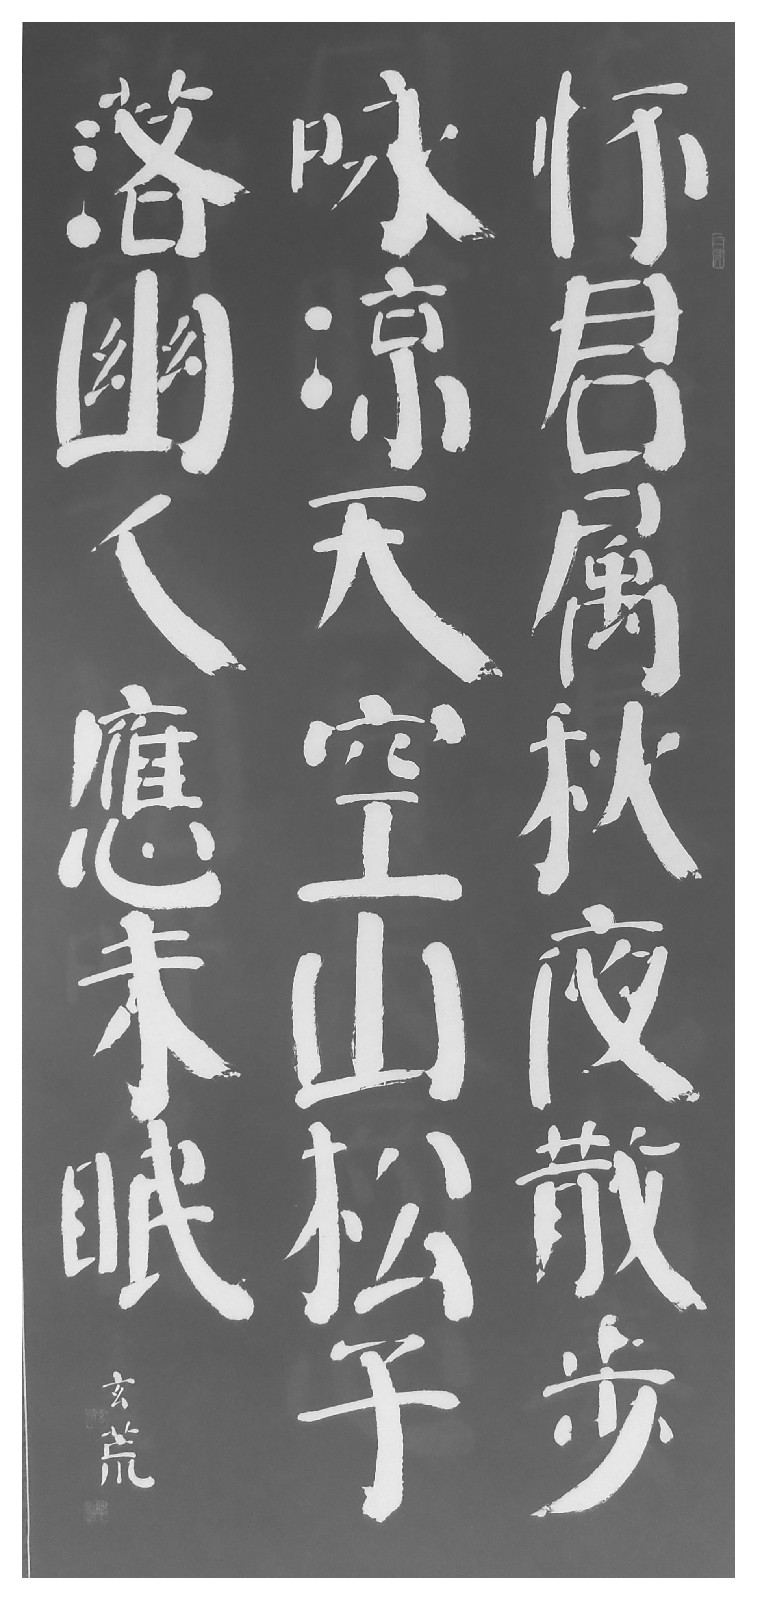 怀君属秋夜散步
咏凉天空山松子
落幽人應未眠
玄荒